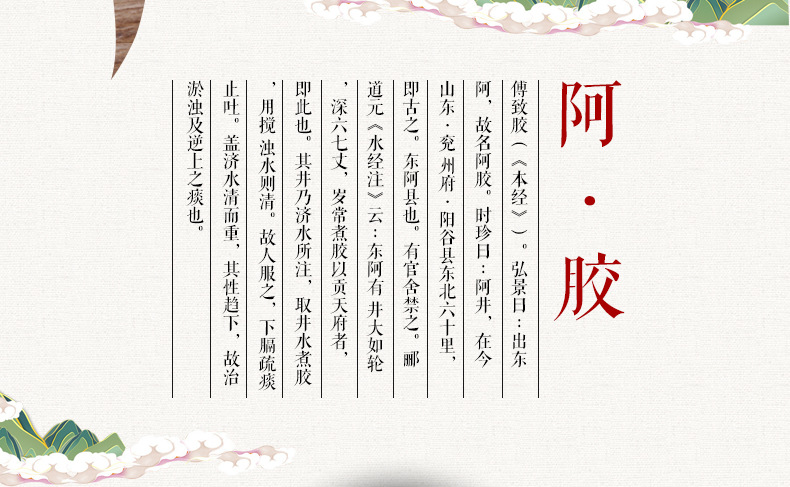 阿·胶
傅致胶(《本经》)。弘景曰:出东
阿,故名阿胶。时珍曰:阿井,在今
山东·兖州府·阳谷县东北六十里,
即古之。东阿县也。有官舍禁之。郦
道元《水经注》云:东阿有井大如轮
,深六七丈,岁常煮胶以贡天府者,
即此也。其井乃济水所注,取井水煮胶
,用搅 浊水则清。故人服之,下膈疏痰
止吐。盖济水清而重,其性趋下,故治
淤浊及逆上之痰也。